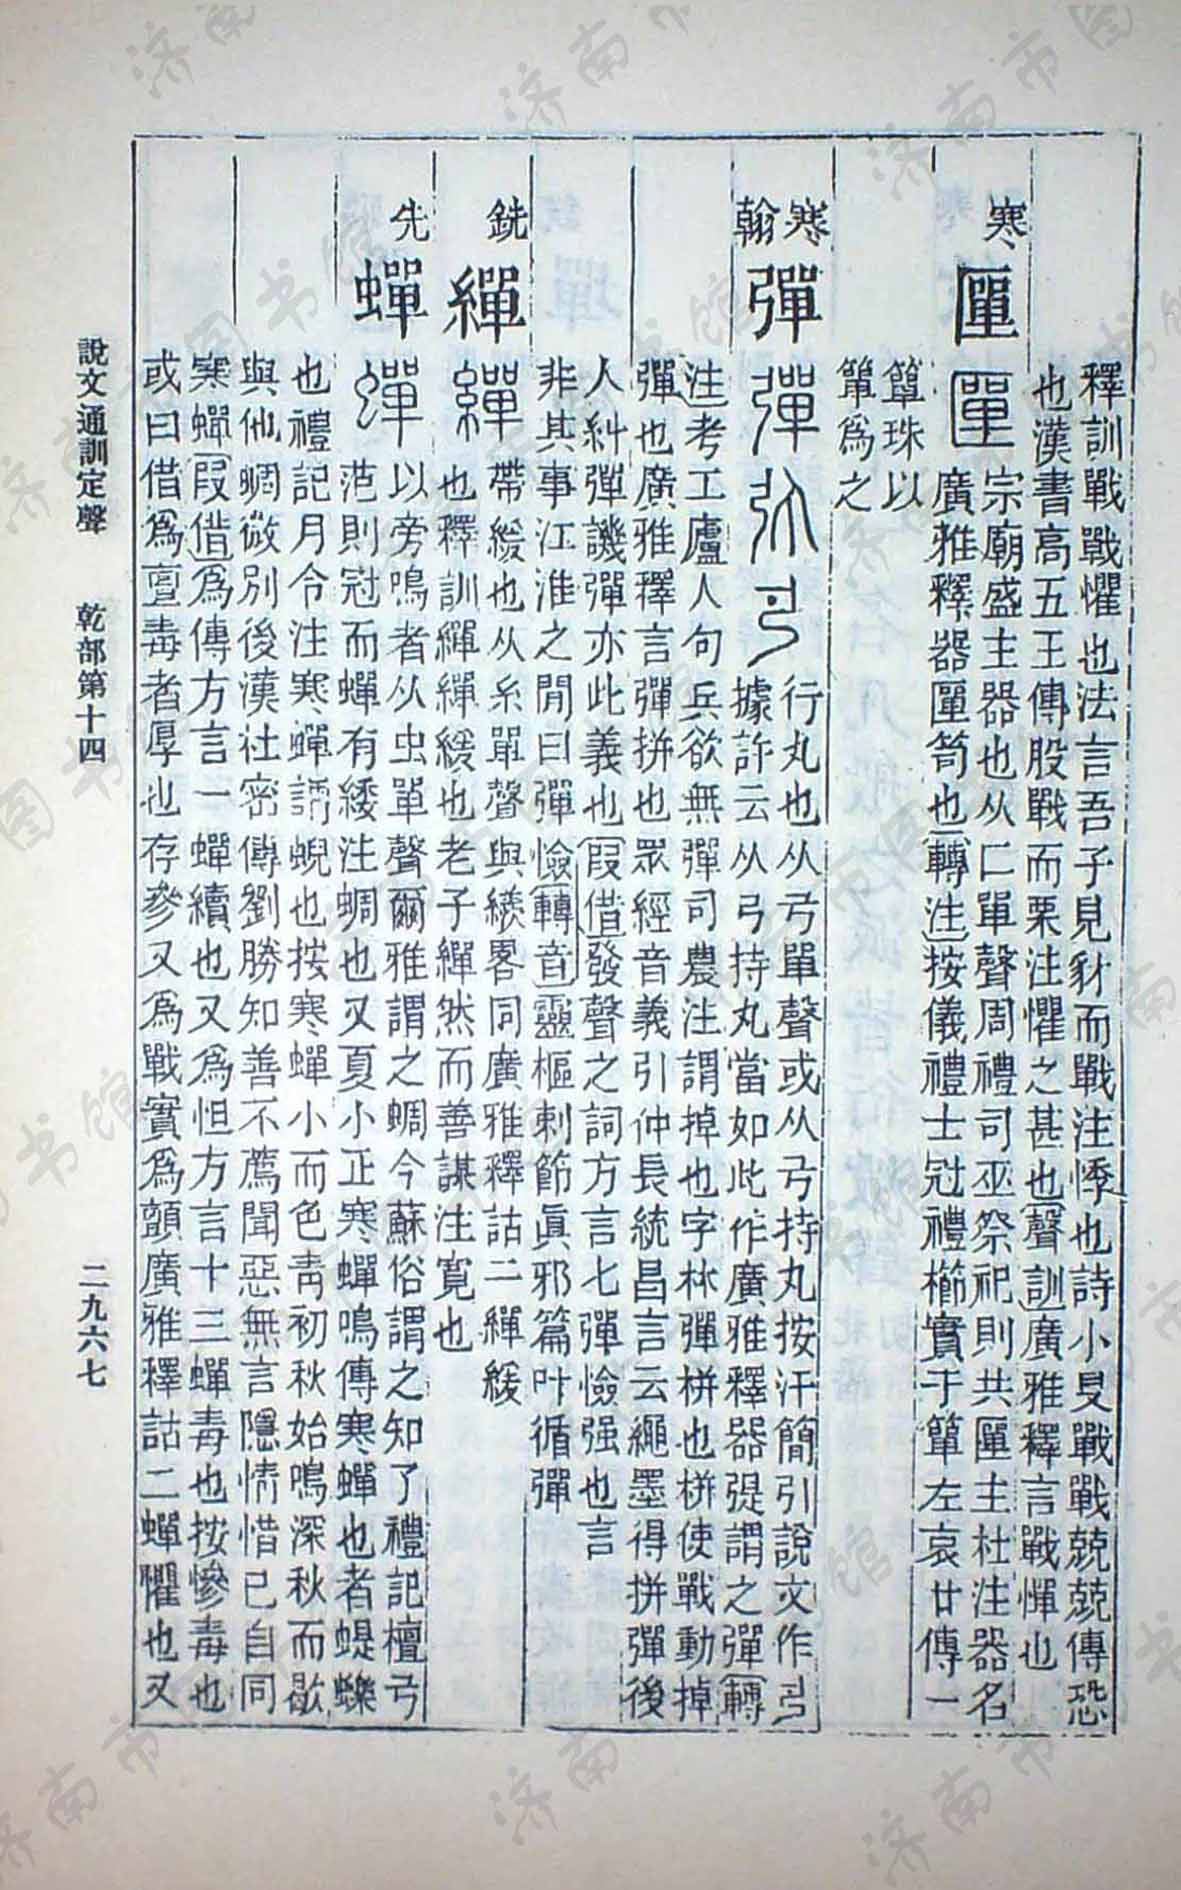 釋訓戰戰懼也法言吾子見豺而戰注悸也詩小旻戰戰兢兢傳恐
也漢書高五王傳股戰而栗注懼之甚也聲訓廣雅釋言戰憚也
寒
匰
宗廟盛主器也从匚單聲周禮司巫祭祀則共匰主杜注器名
廣雅釋器匰笥也轉注按儀禮士冠禮櫛實于簞左哀廿傳一
簞珠以
簞爲之
寒
翰
彈
行丸也从弓單聲或从弓持丸按汗簡引說文作
據許云从弓持丸當如此作廣雅釋器弲謂之彈轉
注考工廬人句兵欲無彈司農注謂掉也字林彈栟也栟使戰動掉
彈也廣雅釋言彈拼也眾經音義引仲長統昌言云繩墨得拼彈後
人糾彈譏彈亦此義也叚借發聲之詞方言七彈憸强也言
非其事江淮之閒曰彈憸轉音靈樞刺節眞邪篇叶循彈
銑
繟
帶緩也从糸單聲與繎畧同廣雅釋詁二繟緩
也釋訓繟繟緩也老子繟然而善謀注寬也
先
蟬
以旁鳴者从虫單聲爾雅謂之蜩今蘇俗謂之知了禮記檀弓
范則冠而蟬有緌注蜩也又夏小正寒蟬鳴傳寒蟬也者蝭蠑
也禮記月令注寒蟬謂蜺也按寒蟬小而色靑初秋始鳴深秋而歇
與他蜩微別後漢社密傳劉勝知善不薦聞惡無言隱情惜己自同
寒蟬叚借爲傳方言一蟬續也又爲怛方言十三蟬毒也按慘毒也
或曰借爲亶毒者厚也存參又爲戰實爲顫廣雅釋詁二蟬懼也又
說文通訓定聲 乾部第十四 二九六七